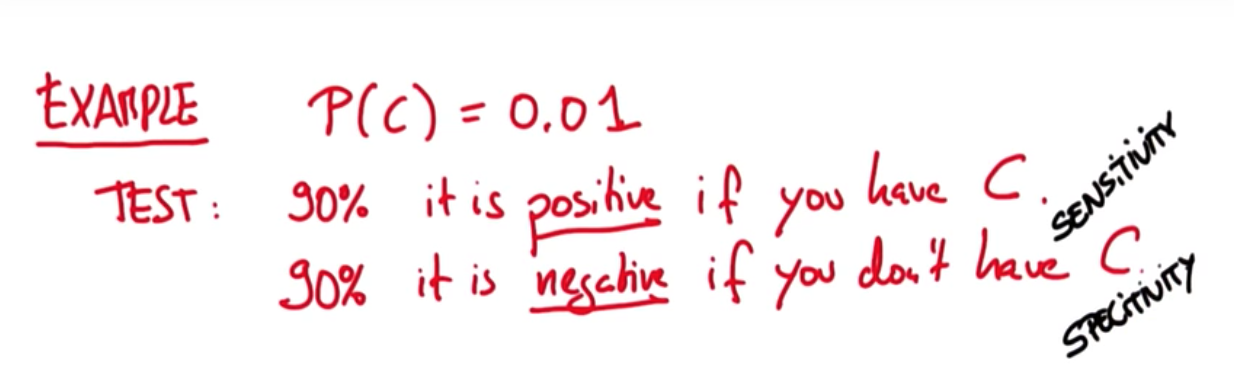 EXAMPLE P(C) = 0.01
TEST: 90% it is positive if you have C. SENSITIVITY
90% it is negative if you don't have C. SPECITIVITY